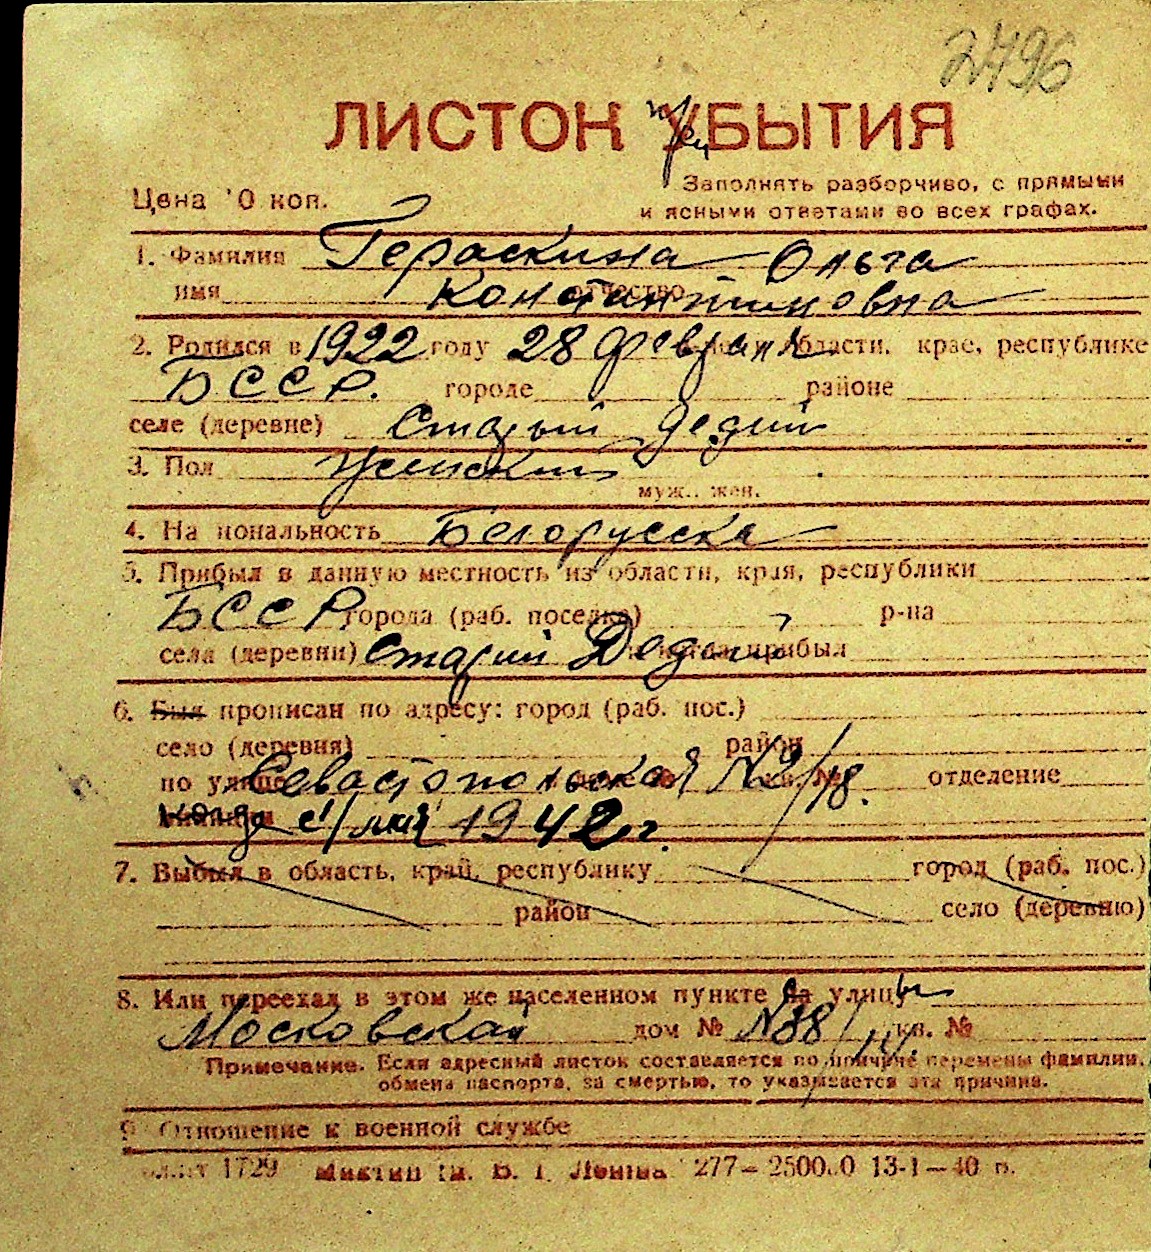 2496
ЛИСТОК УБЫТИЯ
при
Заполнять разборчиво, с прямыми
Цена 10 коп.
и ясными ответами во всех графах.
1. Фамилия Гераскина Ольга
имя отчество Константиновна
2. Родился в 1922 году 28 февраля области, крае, республике
БССР. городе районе
селе (деревне) Старый Дедин
3. Пол женский
муж., жен.
4. Национальность Белорусска
5. Прибыл в данную местность из области, края, республики
БССР города (раб. поселка) р-на
села (деревни) Старий Дедин когда прибыл
6. Был прописан по адресу: город (раб. пос.)
село (деревня) район
по улице Севастопольская № 9/18. кв. № отделение
милиции 1942 г.
7. Выбыл в область, край, республику город (раб. пос.)
район село (деревню)
8. Или переехал в этом же населенном пункте на улицу
Московская дом № №38/ кв. №
Примечание. Если адресный листок составляется по причине перемены фамилии,
обмена паспорта, за смертью, то указывается эта причина.
9 Отношение к военной службе
1729 277—2500.0 13-1—40 г.